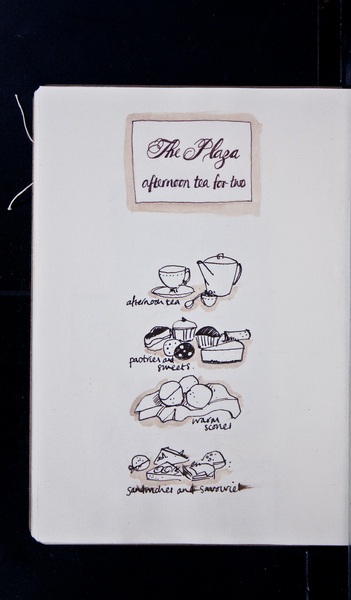 The Plaza
afternoon tea for two
afternoon tea
pastries and
sweets.
warm
scones
sandwiches and savouries